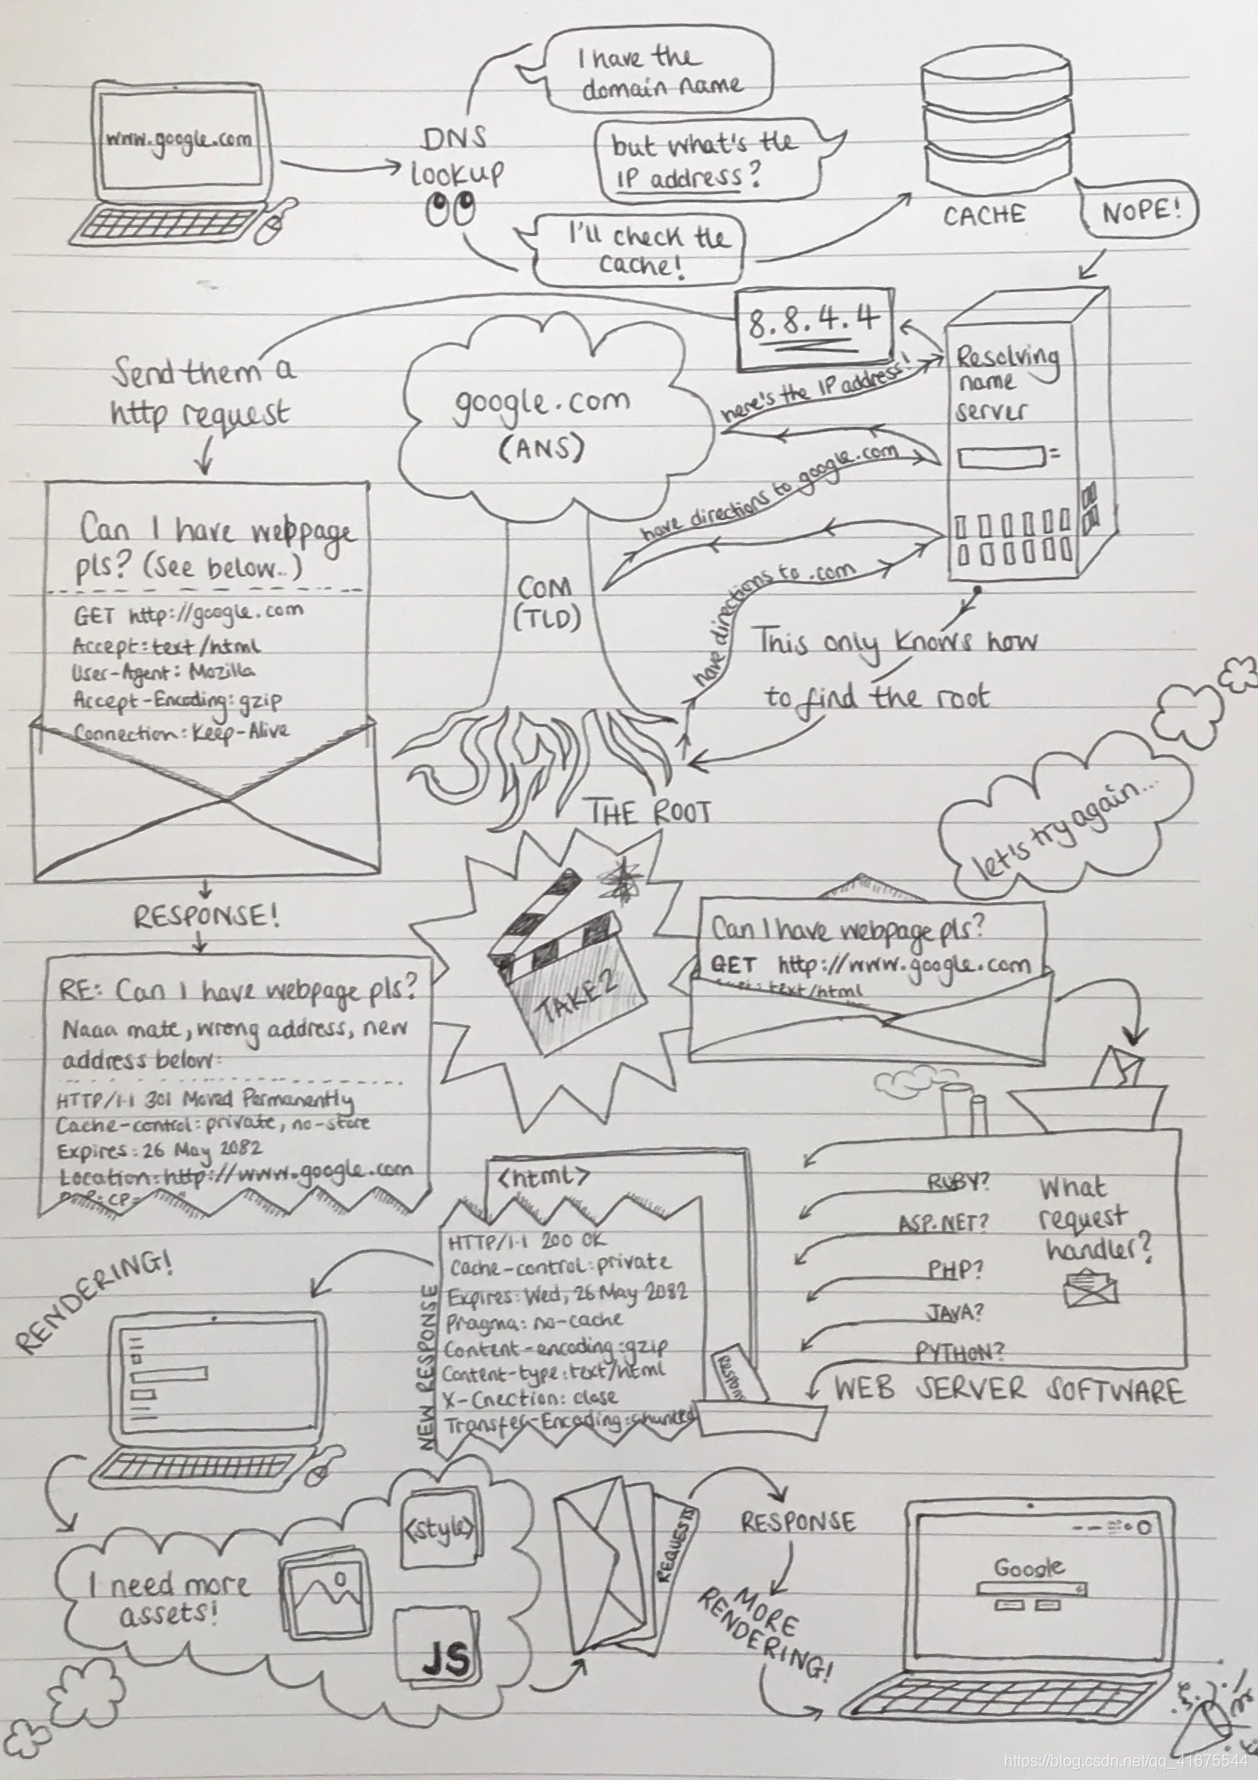 www.google.com
DNS
lookup
I have the
domain name
but what's the
IP address?
I'll check the
cache!
CACHE
NOPE!
8.8.4.4
Resolving
name
server
here's the IP address!
have directions to google.com
have directions to .com
This only knows how
to find the root
google.com
(ANS)
COM
(TLD)
THE ROOT
Send them a
http request
Can I have webpage
pls? (See below..)
GET http://google.com
Accept: text/html
User-Agent: Mozilla
Accept-Encoding: gzip
Connection: Keep-Alive
RESPONSE!
RE: Can I have webpage pls?
Naaa mate, wrong address, new
address below:
HTTP/1.1 301 Moved Permanently
Cache-control: private, no-store
Expires: 26 May 2082
Location: http://www.google.com
TAKE 2
let's try again...
Can I have webpage pls?
GET http://www.google.com
text/html
What
request
handler?
RUBY?
ASP.NET?
PHP?
JAVA?
PYTHON?
WEB SERVER SOFTWARE
<html>
NEW RESPONSE
HTTP/1.1 200 OK
Cache-control: private
Expires: Wed, 26 May 2082
Pragma: no-cache
Content-encoding: gzip
Content-type: text/html
X-Cnection: close
Transfer-Encoding: chunked
RENDERING!
I need more
assets!
<style>
JS
REQUESTS
RESPONSE
MORE
RENDERING!
Google
https://blog.csdn.net/qq_41675544